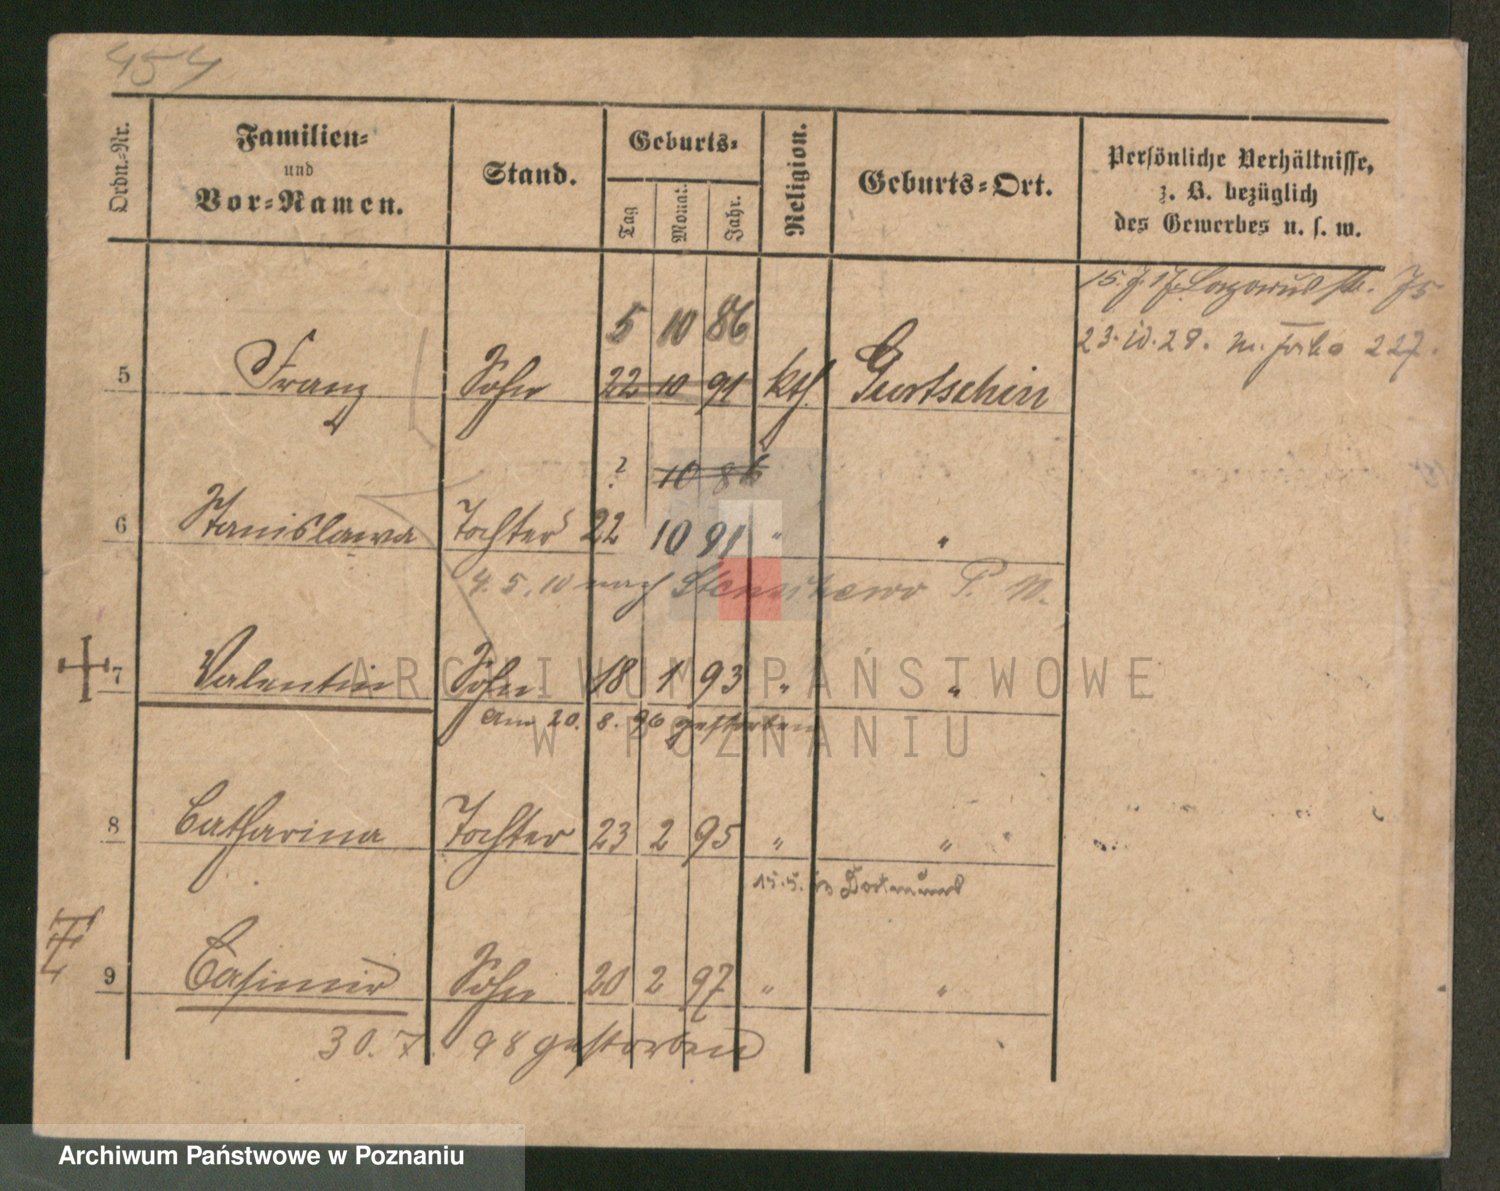 454
Ordn.-Nr.
Familien-
und
Vor-Namen.
Stand.
Geburts-
Tag
Monat.
Jahr.
Religion.
Geburts-Ort.
Persönliche Verhältnisse,
z. B. bezüglich
des Gewerbes u. s. w.
15. 7. 17. Lazarus str. 75
23. 10. 28. 227.
5 10 86
5 Franz Sohn 22 10 91 kth. Gurtschin
? 10 86
6 Stanislawa Tochter 22 10 91 " "
4. 5. 10 nach
7 Valentin Sohn 18 1 93 " "
Am 20. 8. 96 gestorben
8 Catharina Tochter 23 2 95 " "
15. 5. 13 Dortmund
9 Casimir Sohn 20 2 97 " "
30. 7. 98 gestorben
ARCHIWUM PAŃSTWOWE
W POZNANIU
Archiwum Państwowe w Poznaniu